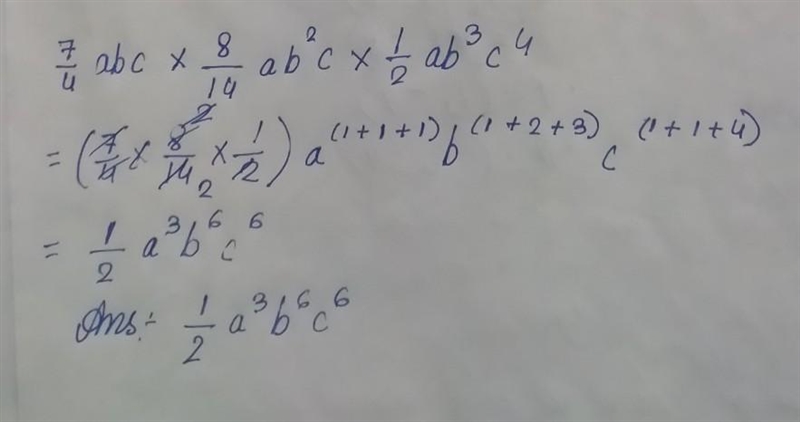 7/4 abc × 8/14 ab²c × 1/2 ab³c⁴
= (7/4 × 8/14 × 1/2) a^(1+1+1) b^(1+2+3) c^(1+1+4)
= 1/2 a³b⁶c⁶
Ans:- 1/2 a³b⁶c⁶